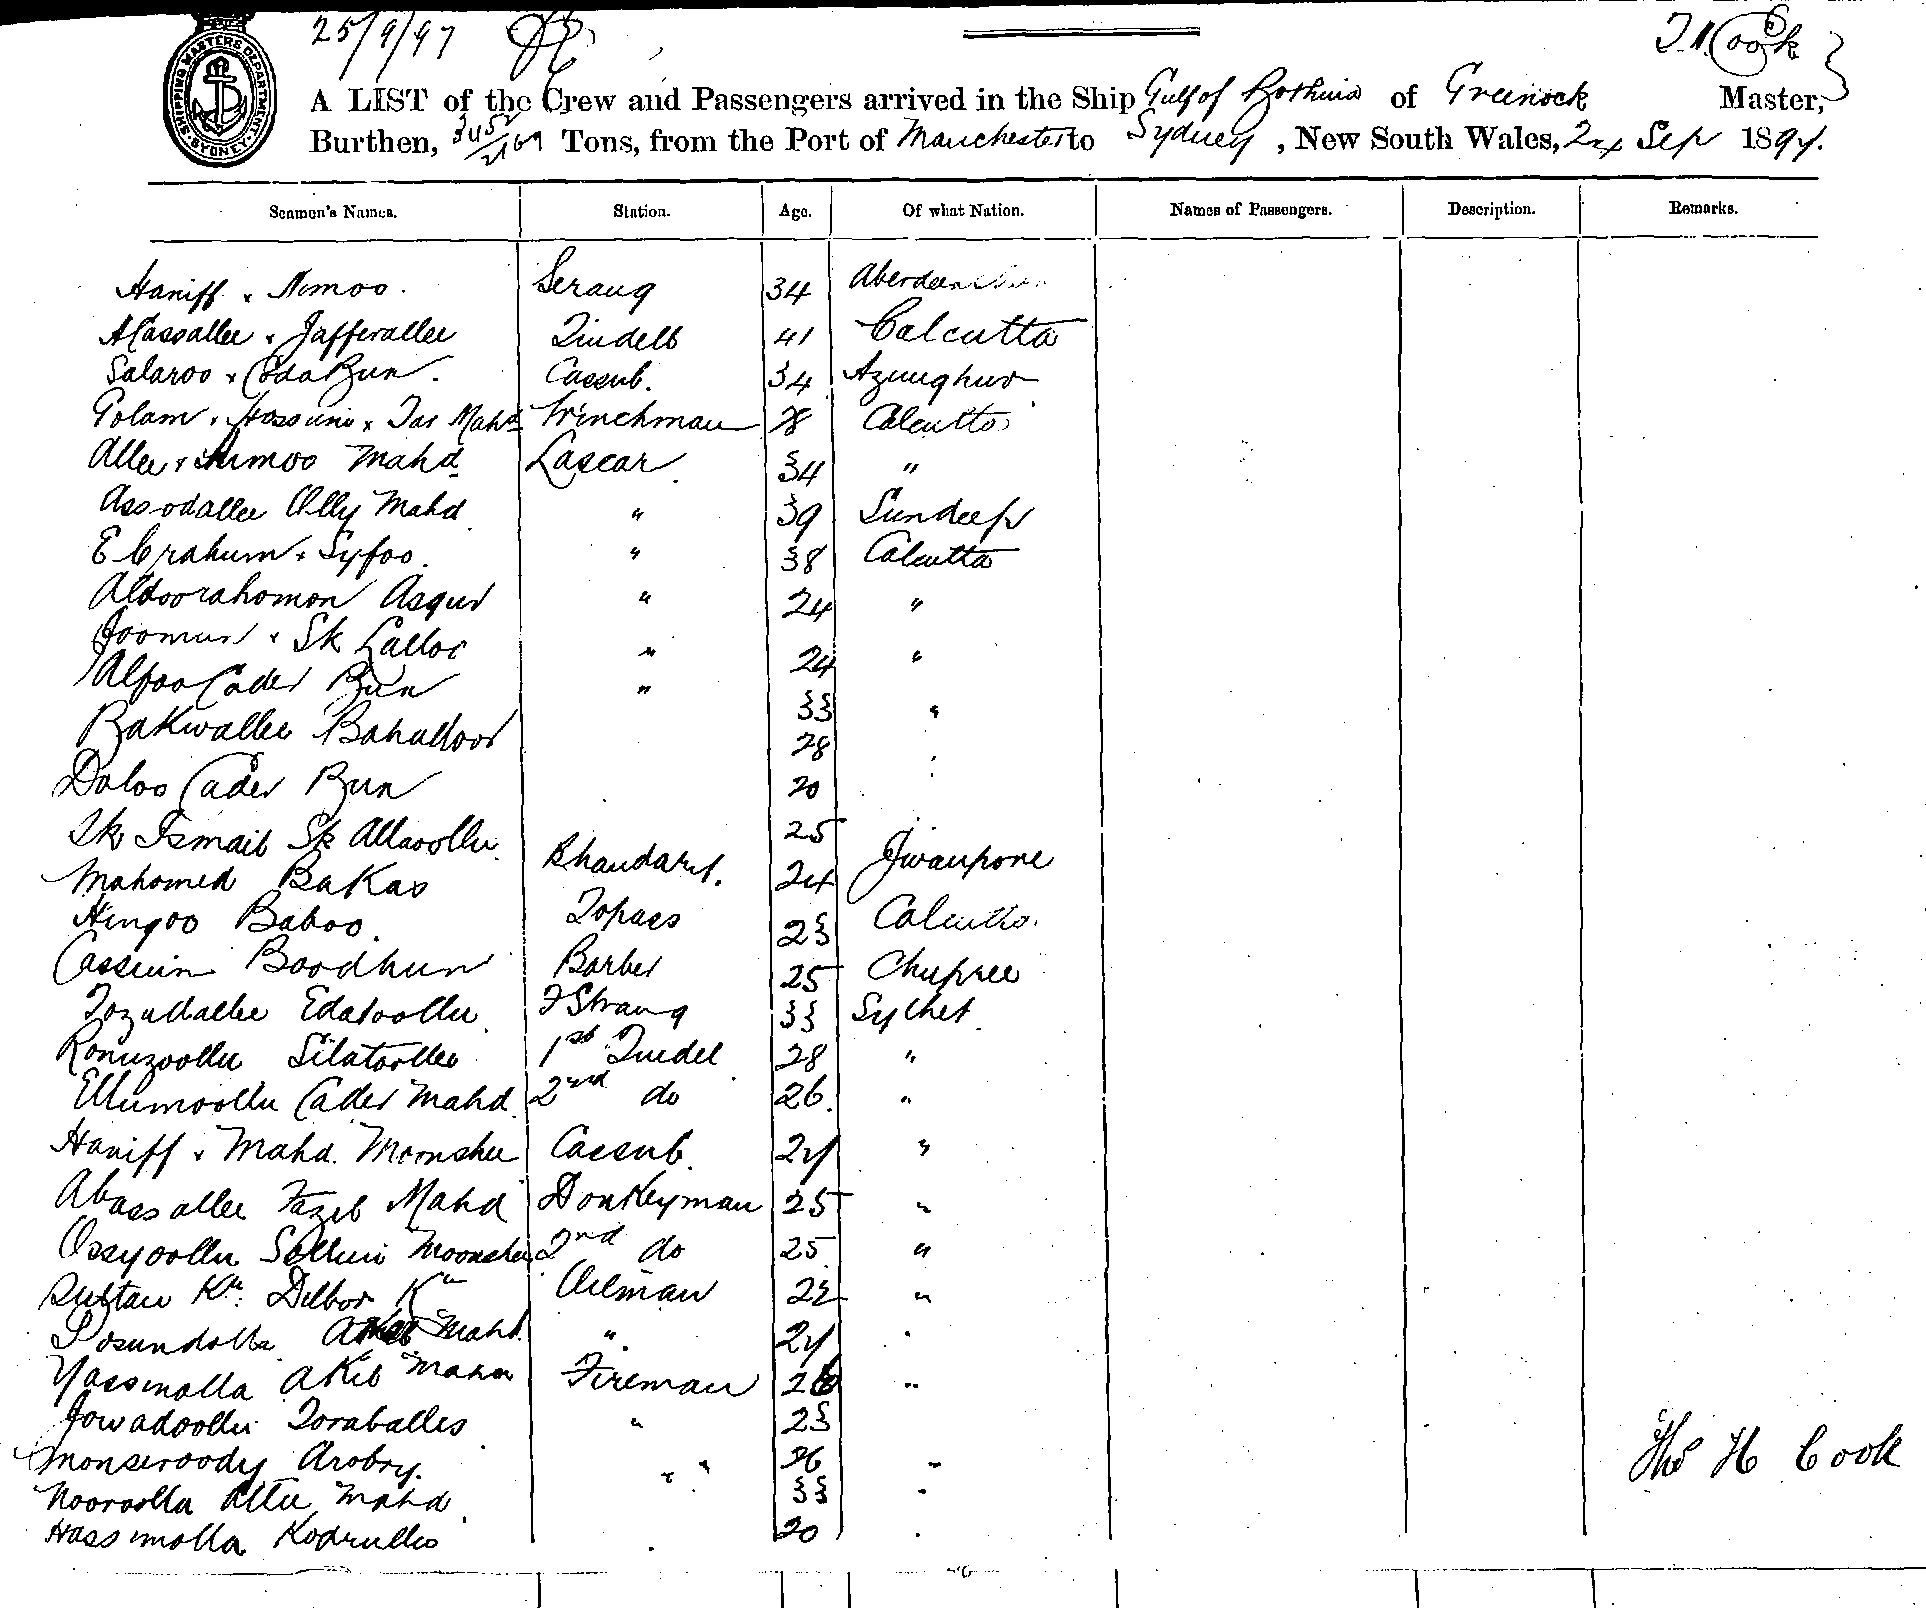 25/9/97
T. H. Cook
SHIPPING MASTERS DEPARTMENT SYDNEY
A LIST of the Crew and Passengers arrived in the Ship Gulf of Bothnia of Greenock Master,
Burthen, 3452/2169 Tons, from the Port of Manchester to Sydney, New South Wales, 24 Sep 1897.
Seamen's Names. Station. Age. Of what Nation. Names of Passengers. Description. Remarks.
Haniff x Nomoo. Serang 34
Jafferallee Tindell 41 Calcutta
Salaroo x Coda Bun. Cassub. 34 Azimghur
Golam x Hossini x Mahd Winchman 28 Calcutta
Allee x Mahd Lascar 34 "
Assodallee Olly Mahd " 39 Sundeep
Ebrahum x Syfoo. " 38 Calcutta
Abdoorahomon Asgur " 24 "
Joomun x Sk Lalloo " 24 "
Alfoo Cader Bun " 33 "
Bakwallee Bahadoor 28
Daloo Cader Bun 20
Sk Ismail Sk Allaoollu 25
Mahomed Bakas Bhandary. 24 Jwanpore
Hingoo Baboo. Topass 23 Calcutta.
Cassim Boodhun Barber 25 Chupree
Tozudallee Edatoollu F Serang 33 Sylhet
Ronuzoollu Silatoollee 1st Tindel 28 "
Ellumoollu Cader Mahd. 2nd do 26. "
Haniff x Mahd. Moonshee Cassub 27 "
Abassallee Fazil Mahd Donkeyman 25 "
Ossyoollu Sellim Moonshee 2nd do 25 "
Sultan Kn: Delbor Kn Oilman 22 "
Mahd. " 27 "
Yassimolla Akib Mahd Fireman 26 "
Jowadoollu Toraballee " 23
Monseroody Arobdy. " 26 "
Nooroolla Allee Mahd 33 "
Hassimolla Kodrulla 20
Thos H Cook